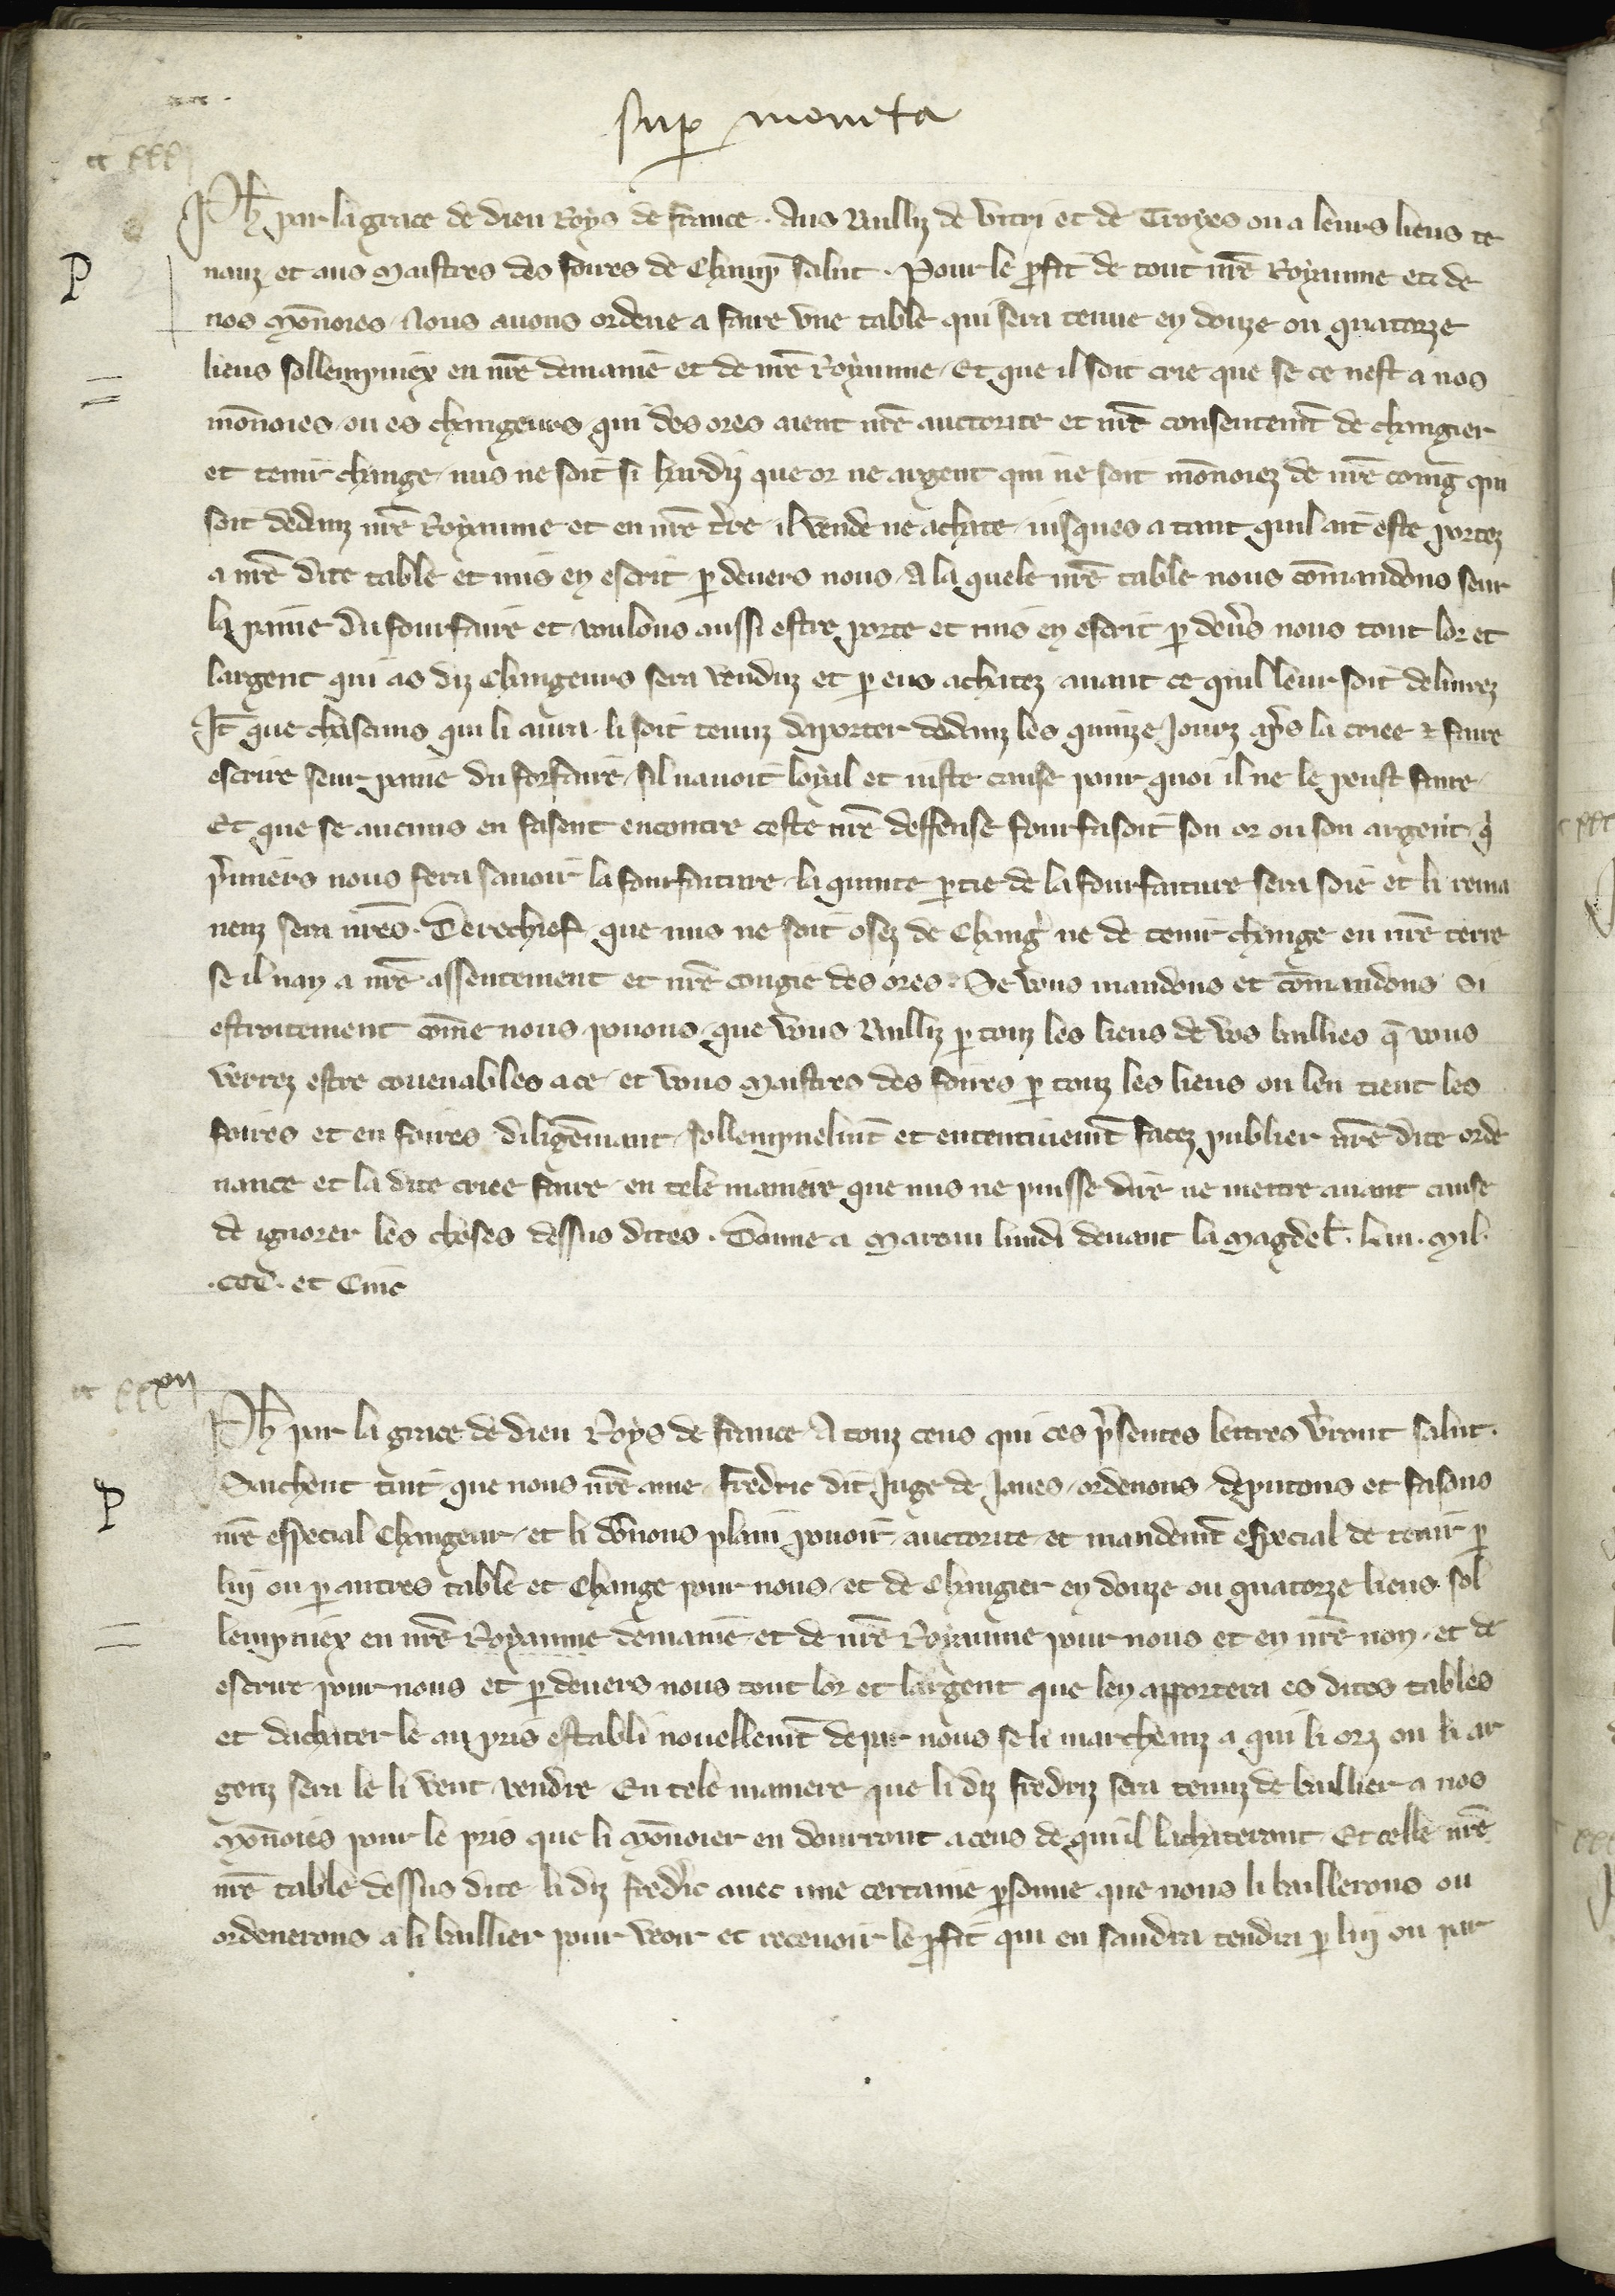 sup moneta
cc xxxj
Ph par la grace de dieu Roys de france. Aus Bailliz de Vitri et de Troyes ou a leurs lieus te
P
nanz et aus Maistres des foires de Champ salut. Pour le pfit de tout nre Royaume et de
nos Monoies. Nous avons ordene a faire une table qui sera tenue en douze ou quatorze
lieus sollempniex en nre demaine et de nre Royaume. Et que il soit crie que se ce nest a nos
monoies ou es changeurs qui des ores aient nre auctorite et nre consentemt de changier
et tenir change nus ne soit si hardiz que or ne argent qui ne soit monoiez de nre coing qui
soit dedanz nre Royaume et en nre tre il vende ne achate iusques a tant quil ait este portez
a nre dite table et mis en escrit p devers nous. A la quele nre table nous comandons seur
la paine du fourfaire et voulons aussi estre porte et mis en escrit p devs nous tout lor et
largent qui as diz Changeurs sera venduz et p eus achatez avant ce quil leur soit delivrez
It que chascuns qui li aura li soit tenuz daporter dedanz les quinze Jourz aps la criee & faire
escrire seur paine du forfaire, sil navoit loyal et iuste cause pour quoi il ne le peust faire
Et que se aucuns en fasent encontre ceste nre deffense fourfasoit son or ou son argent q
pmiers nous fera savoir la fourfaiture la quinte ptie de la fourfaiture sera soie et li rema
nenz sera nres. Derechief que nus ne soit osez de Changr ne de tenir change en nre terre
se il nay a nre assentement et nre congie des ores. Se vous mandons et comandons si
estroitement come nous povons que vous Bailliz p touz les lieus de vos baillies q vous
verrez estre covenables a ce et vous Maistres des foires p touz les lieus ou len tient les
foires et en foires diligemant sollempnelmt et ententivemt facez publier nre dite orde
nance et la dite criee faire en tele maniere que nus ne puisse dire ne mettre avant cause
de ignorer les choses dessus dites. Donne a lundi devant la Magdel. lan. Mil.
.CCC. et Cinc
cc xxxij
Ph par la grace de dieu Roys de france A touz ceus qui ces psentes lettres vront salut.
P
Saichent tuit que nous nre ame Fredric dit Juge de Janes ordenons deputons et fasons
nre especial Changeur et li donons plain povoir auctorite et mandemt especial de tenir p
luy ou p autres table et Change pour nous et de Changier en douze ou quatorze lieus sol
lempniex en nre Royaume demaine et de nre Royaume pour nous et en nre non et de
escrire pour nous et p devers nous tout lor et largent que len apportera es dites tables
et dachater le au pris establi novellemt de par nous se li marcheanz a qui li orz ou li ar
genz sera le li veut vendre En tele maniere que li diz fredriz sera tenuz de baillier a nos
Monoies pour le pris que li Monoier en dourront a ceus de qui il lachateront Et celle nre
nre table dessus dite li diz fredric avec une certaine psonne que nous li baillerons ou
ordenerons a li baillier pour veoir et recevoir le pfit qui en saudra tendra p luy ou par